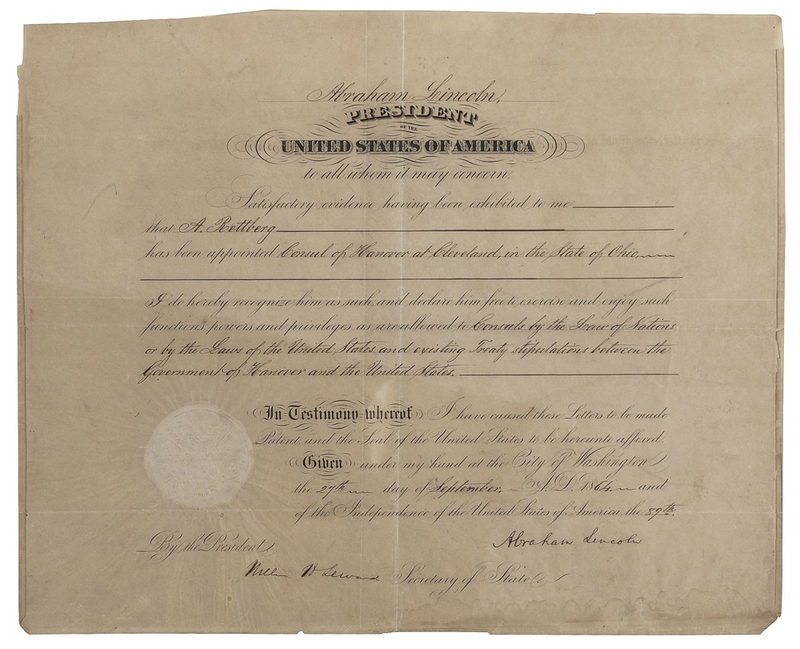 Abraham Lincoln,
PRESIDENT
OF THE
UNITED STATES OF AMERICA
to all whom it may concern.
Satisfactory evidence having been exhibited to me
that A. Rettberg
has been appointed Consul of Hanover at Cleveland, in the State of Ohio,
I do hereby recognize him as such, and declare him free to exercise and enjoy such
functions, powers and privileges as are allowed to Consuls by the Law of Nations
or by the Laws of the United States and existing Treaty stipulations between the
Government of Hanover and the United States.
In Testimony whereof I have caused these Letters to be made
Patent, and the Seal of the United States to be hereunto affixed.
Given under my hand at the City of Washington
the 27th day of September, A.D. 1864 and
of the Independence of the United States of America, the 89th.
Abraham Lincoln
By the President
William H Seward Secretary of State